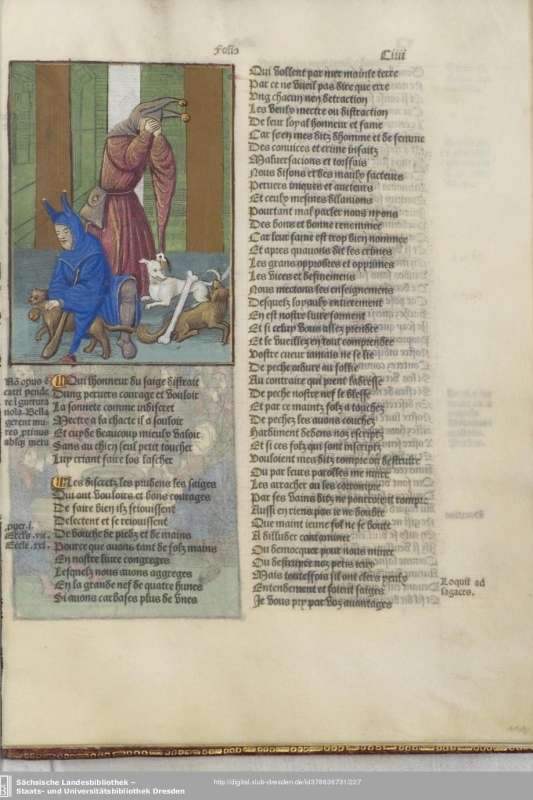 Folio
Ciiii
Qui lhonneur du saige diffrait
Dung peruers courage et vouloir
La sonnete comme indiscret
Mettre a la chacte il a souloir
Et cuyde beaucoup mieulx valoir
Sans au chien seul petit toucher
Luy criant faire los lascher
Les discretz les prudens les saiges
Qui ont vouloirs et bons courages
De faire bien ilz sesiouissent
Delectent et se resiouissent
De bouche de piedz et de mains
Pource que auons tant de folz mains
En nostre liure congreges
Lesquelz nous auons aggreges
En la grande nef de quatre hunes
Si auons carbases plus de vnes
Qui vollent par mer mainte terre
Par ce ne vueil pas dire que erre
Vng chacun nen detraction
Les veulx mectre ou distraction
De leur loyal honneur et fame
Car se en mes ditz dhomme et de femme
Des conuices et crime infaitz
Maluersacions et torffais
Nous disons et des maulx facteurs
Peruers iniques et aucteurs
Et ceulx mesmes dilanions
Pourtant mal parler nous nyons
Des bons et bonne renommee
Car leur fame est trop bien nommee
Et apres quauons dit les crimes
Les grans opprobres et opprimes
Les vices et
Nous mectons les enseignemens
Desquelz loyaulx entierement
En est nostre liure
Et si celuy vous allez prendre
Et le vueillez en tout comprendre
Vostre cueur iamais ne se lie
De peche ordure ou follie
Au contraire qui prent ladresse
De peche nostre nef le blesse
Et par ce maintz folz a touchez
De pechez les auons couchez
Hardiment dedens noz escriptz
Et si ces folz qui sont inscriptz
Vouloient mes ditz rompre ou destruire
Ou par leurs parolles me nuire
Les arracher ou les corrompre
Par ses vains ditz ne pourroit il rompre
Aussi en riens pas ie ne doubte
Que maint ieune fol ne se boute
A
Ou democquer pour nous miner
Ou destruyre noz petis
Mais touteffois sil ont clers yeulx
Entendement et soient saiges
Je vous pry par voz auantages
prouer. l.
Eccle. vii.
Eccle. xxi.
Loquit ad
sagaces.
Sächsische Landesbibliothek –
Staats- und Universitätsbibliothek Dresden
http://digital.slub-dresden.de/id378636731/227